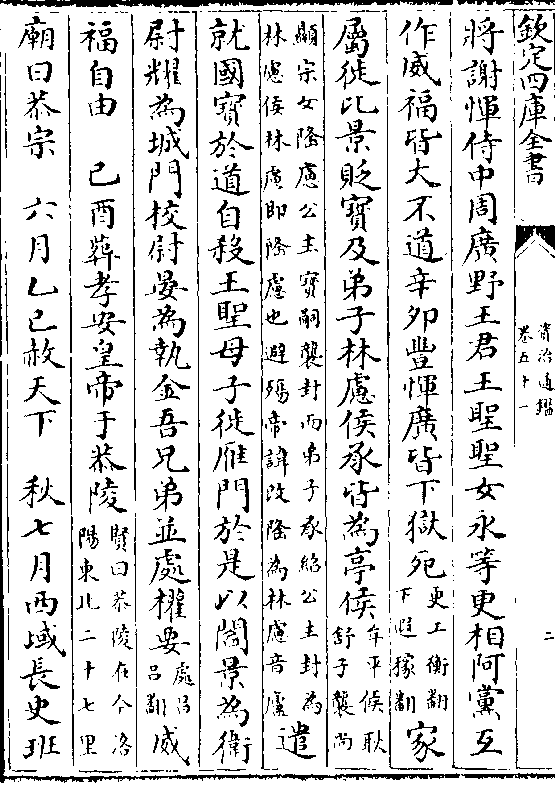 欽定四庫全書
資治通鑑
卷五十一
二
將謝惲侍中周廣野王君王聖聖女永等更相阿黨互
作威福皆大不道辛卯豐惲廣皆下獄死更工衡翻下遐稼翻家
屬徙比景貶寶及弟子林慮侯承皆為亭侯牟平侯耿舒子襲尚
顯宗女隆慮公主寶嗣襲封而弟子承紹公主封為林慮侯林慮即隆慮也避殤帝諱改隆為林慮音廬遣
就國寶於道自殺王聖母子徙雁門於是以閻景為衛
尉耀為城門校尉晏為執金吾兄弟並處權要處昌呂翻威
福自由　己酉葬孝安皇帝于恭陵賢曰恭陵在今洛陽東北二十七里
廟曰恭宗　六月乙巳赦天下　秋七月西域長史班